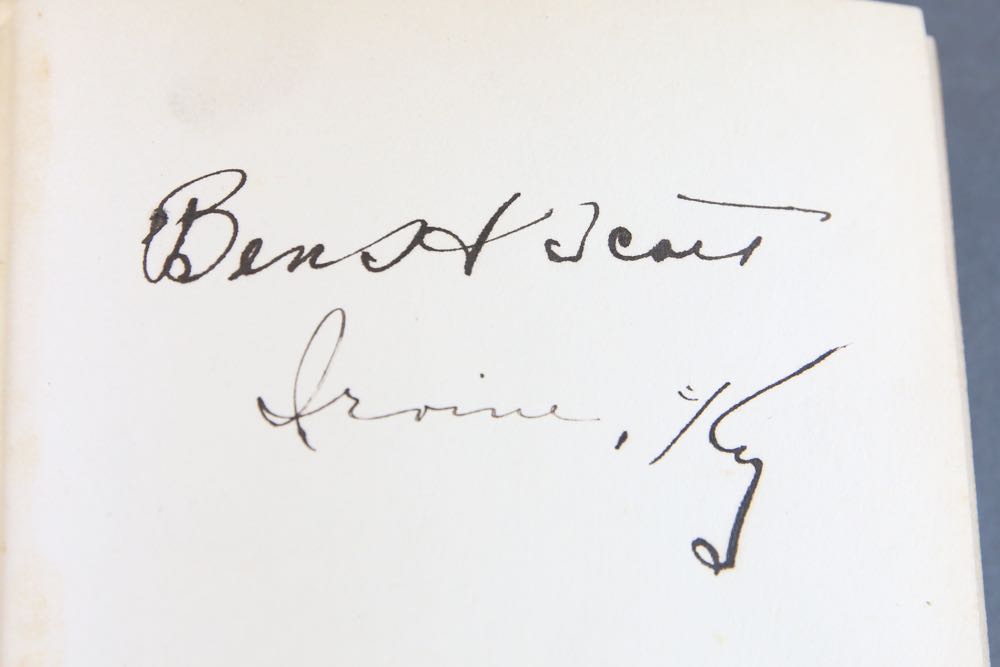 Ben H Scott
Irvine, Ky